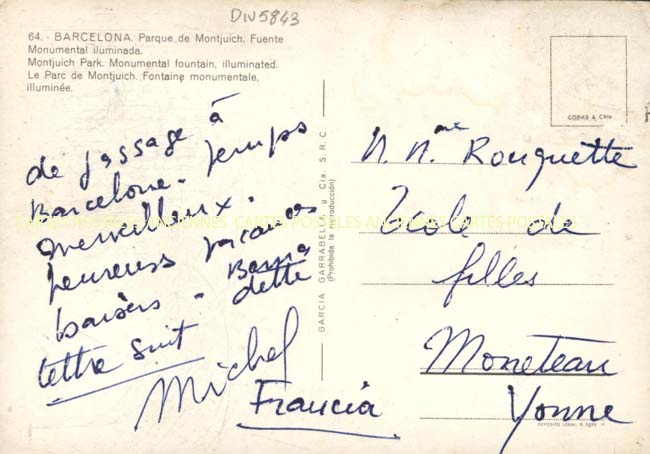 DIV5843
64. - BARCELONA. Parque de Montjuich. Fuente
Monumental iluminada.
Montjuich Park. Monumental fountain, illuminated.
Le Parc de Montjuich. Fontaine monumentale,
illuminée.
de passage à
Barcelone. Temps
merveilleux.
heureuses vacances
baisers. Berna
dette
lettre suit
Michel
GARCIA GARRABELLA y Cia. S.R.C.
(Prohibida la reproducción)
COBAS & Cía
M. Mme Rouquette
Ecole de
filles
Moneteau
Yonne
Francia
CARTES POSTALES ANCIENNES CARTES POSTALES
DEPOSITO LEGAL B.